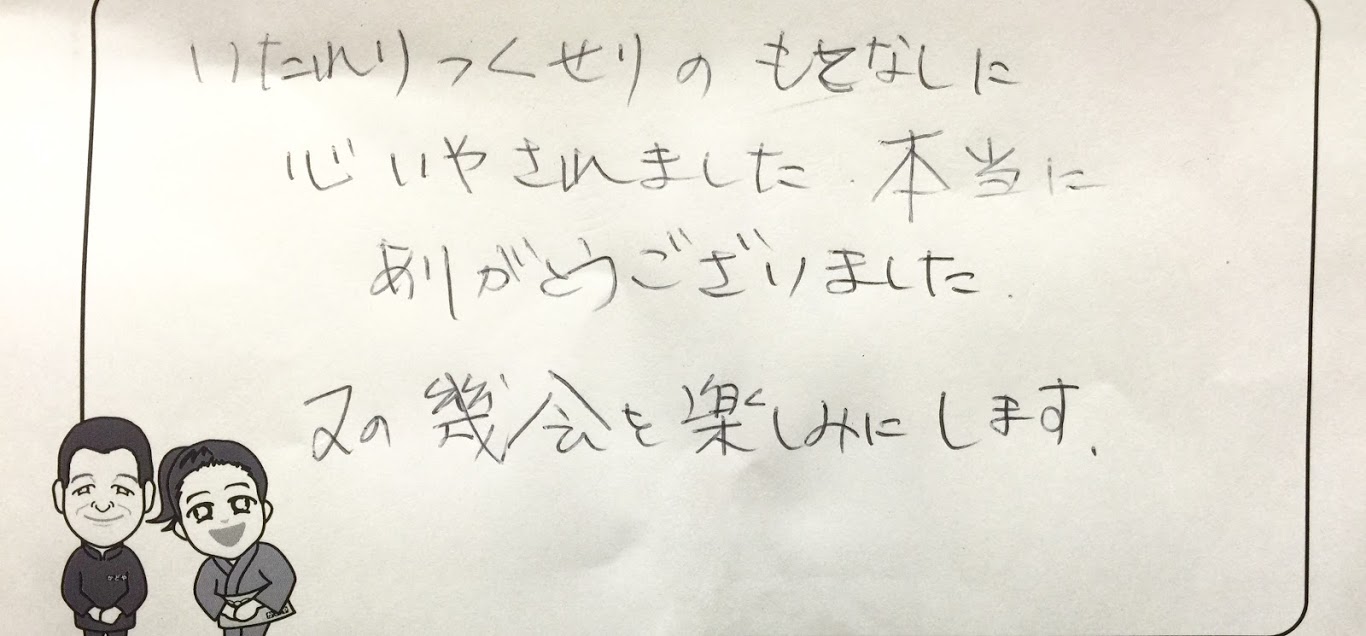 いたれりつくせりの もてなしに
心いやされました. 本当に
ありがとうございました.
又の 幾会を楽しみにします.
かどや